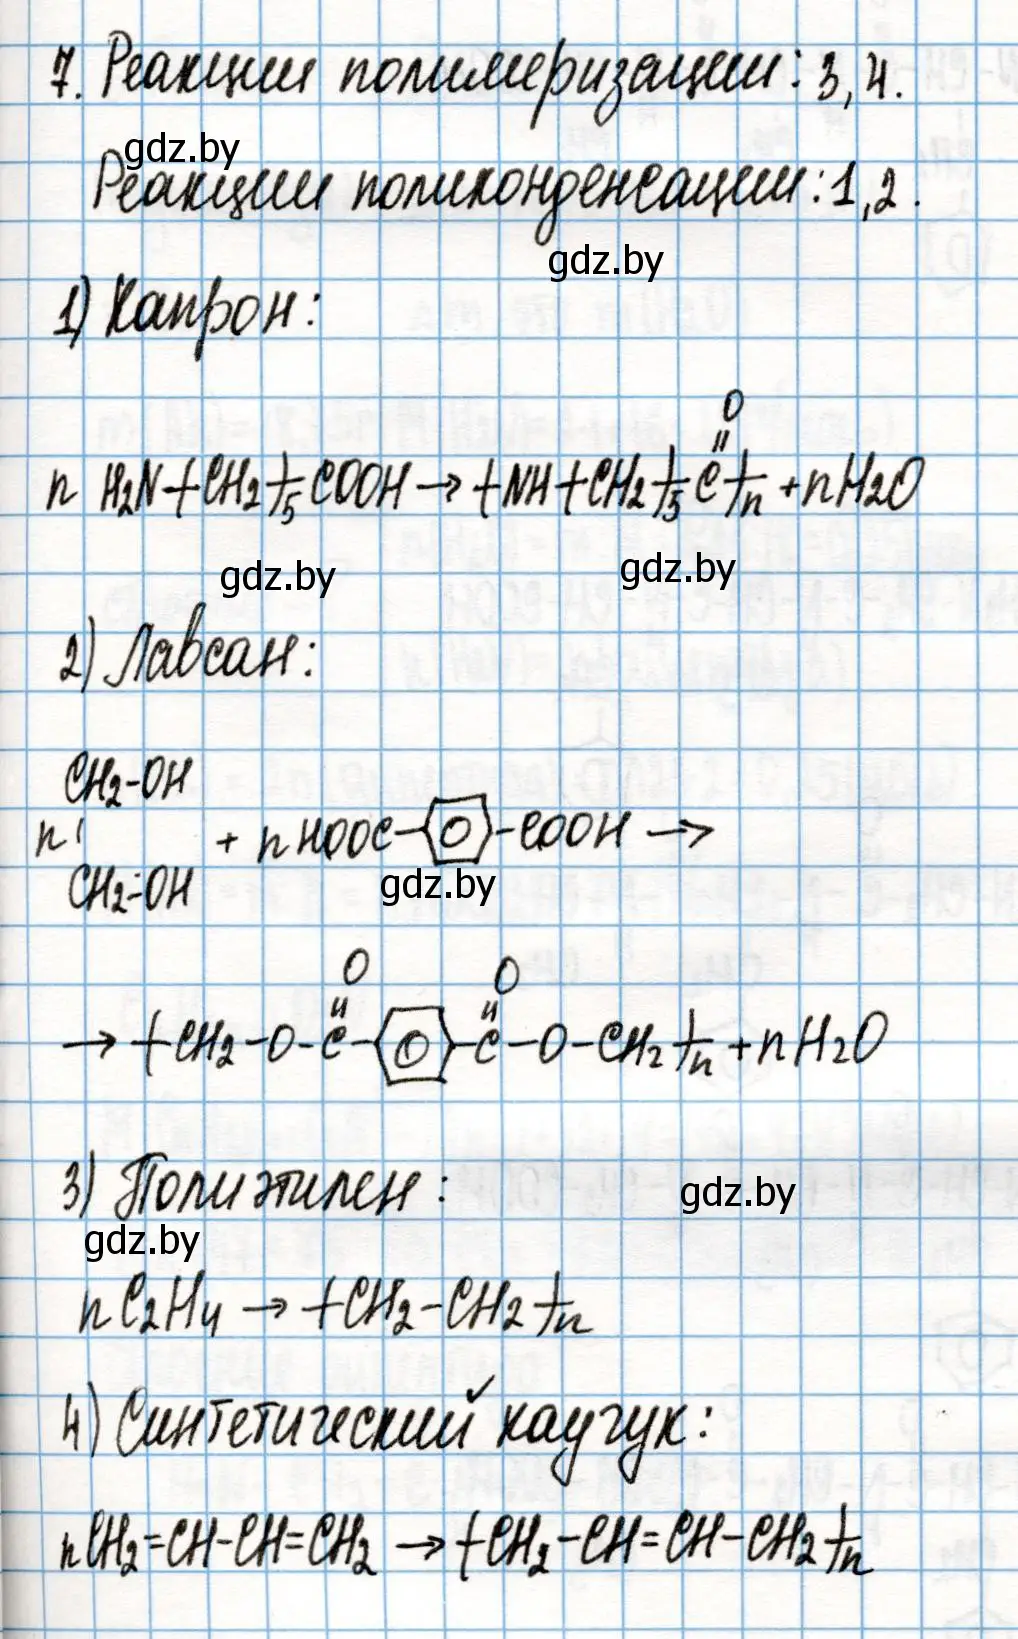 7. Реакции полимеризации: 3, 4.
gdz.by
Реакции поликонденсации: 1, 2.
gdz.by
1) Капрон:
O
n H2N-(-CH2-)-5COOH → (-NH-(-CH2-)-5C-)-n + nH2O
gdz.by gdz.by
2) Лавсан:
CH2-OH
n + n HOOC- -COOH →
CH2-OH
gdz.by
O O
→ (-CH2-O-C- -C-O-CH2-)-n + nH2O
3) Полиэтилен:
gdz.by
gdz.by
nC2H4 → (-CH2-CH2-)-n
4) Синтетический каучук:
nCH2=CH-CH=CH2 → (-CH2-CH=CH-CH2-)-n